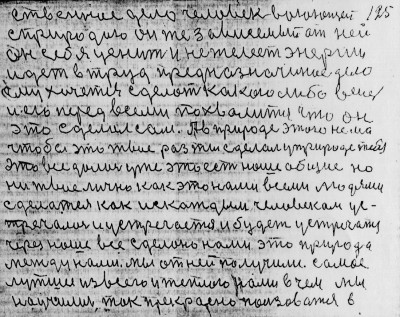 ственное дело человек воюющей 125
с природою он же зависемый от ней
он себя ценит и нежелеет энергии
идет в труд предназначиное дело
ему хочется сделат какого либо
и его перед всеми похвалится что он
это сделал сам. А в природе этого нема
чтобы это твое раз ти сделал у природе тебя
это все долих уже это есть наше общие но
ни твие лично как это нами всеми людями
сделатся как и скаждим человеком ус-
тречалос и устречается и будет устречатся
через наше все сделоно нами это природа
между нами. мы от ней получили самое
лутшие из всего и теплого нами в чем ми
научилис, так прекрасно ползоватся в